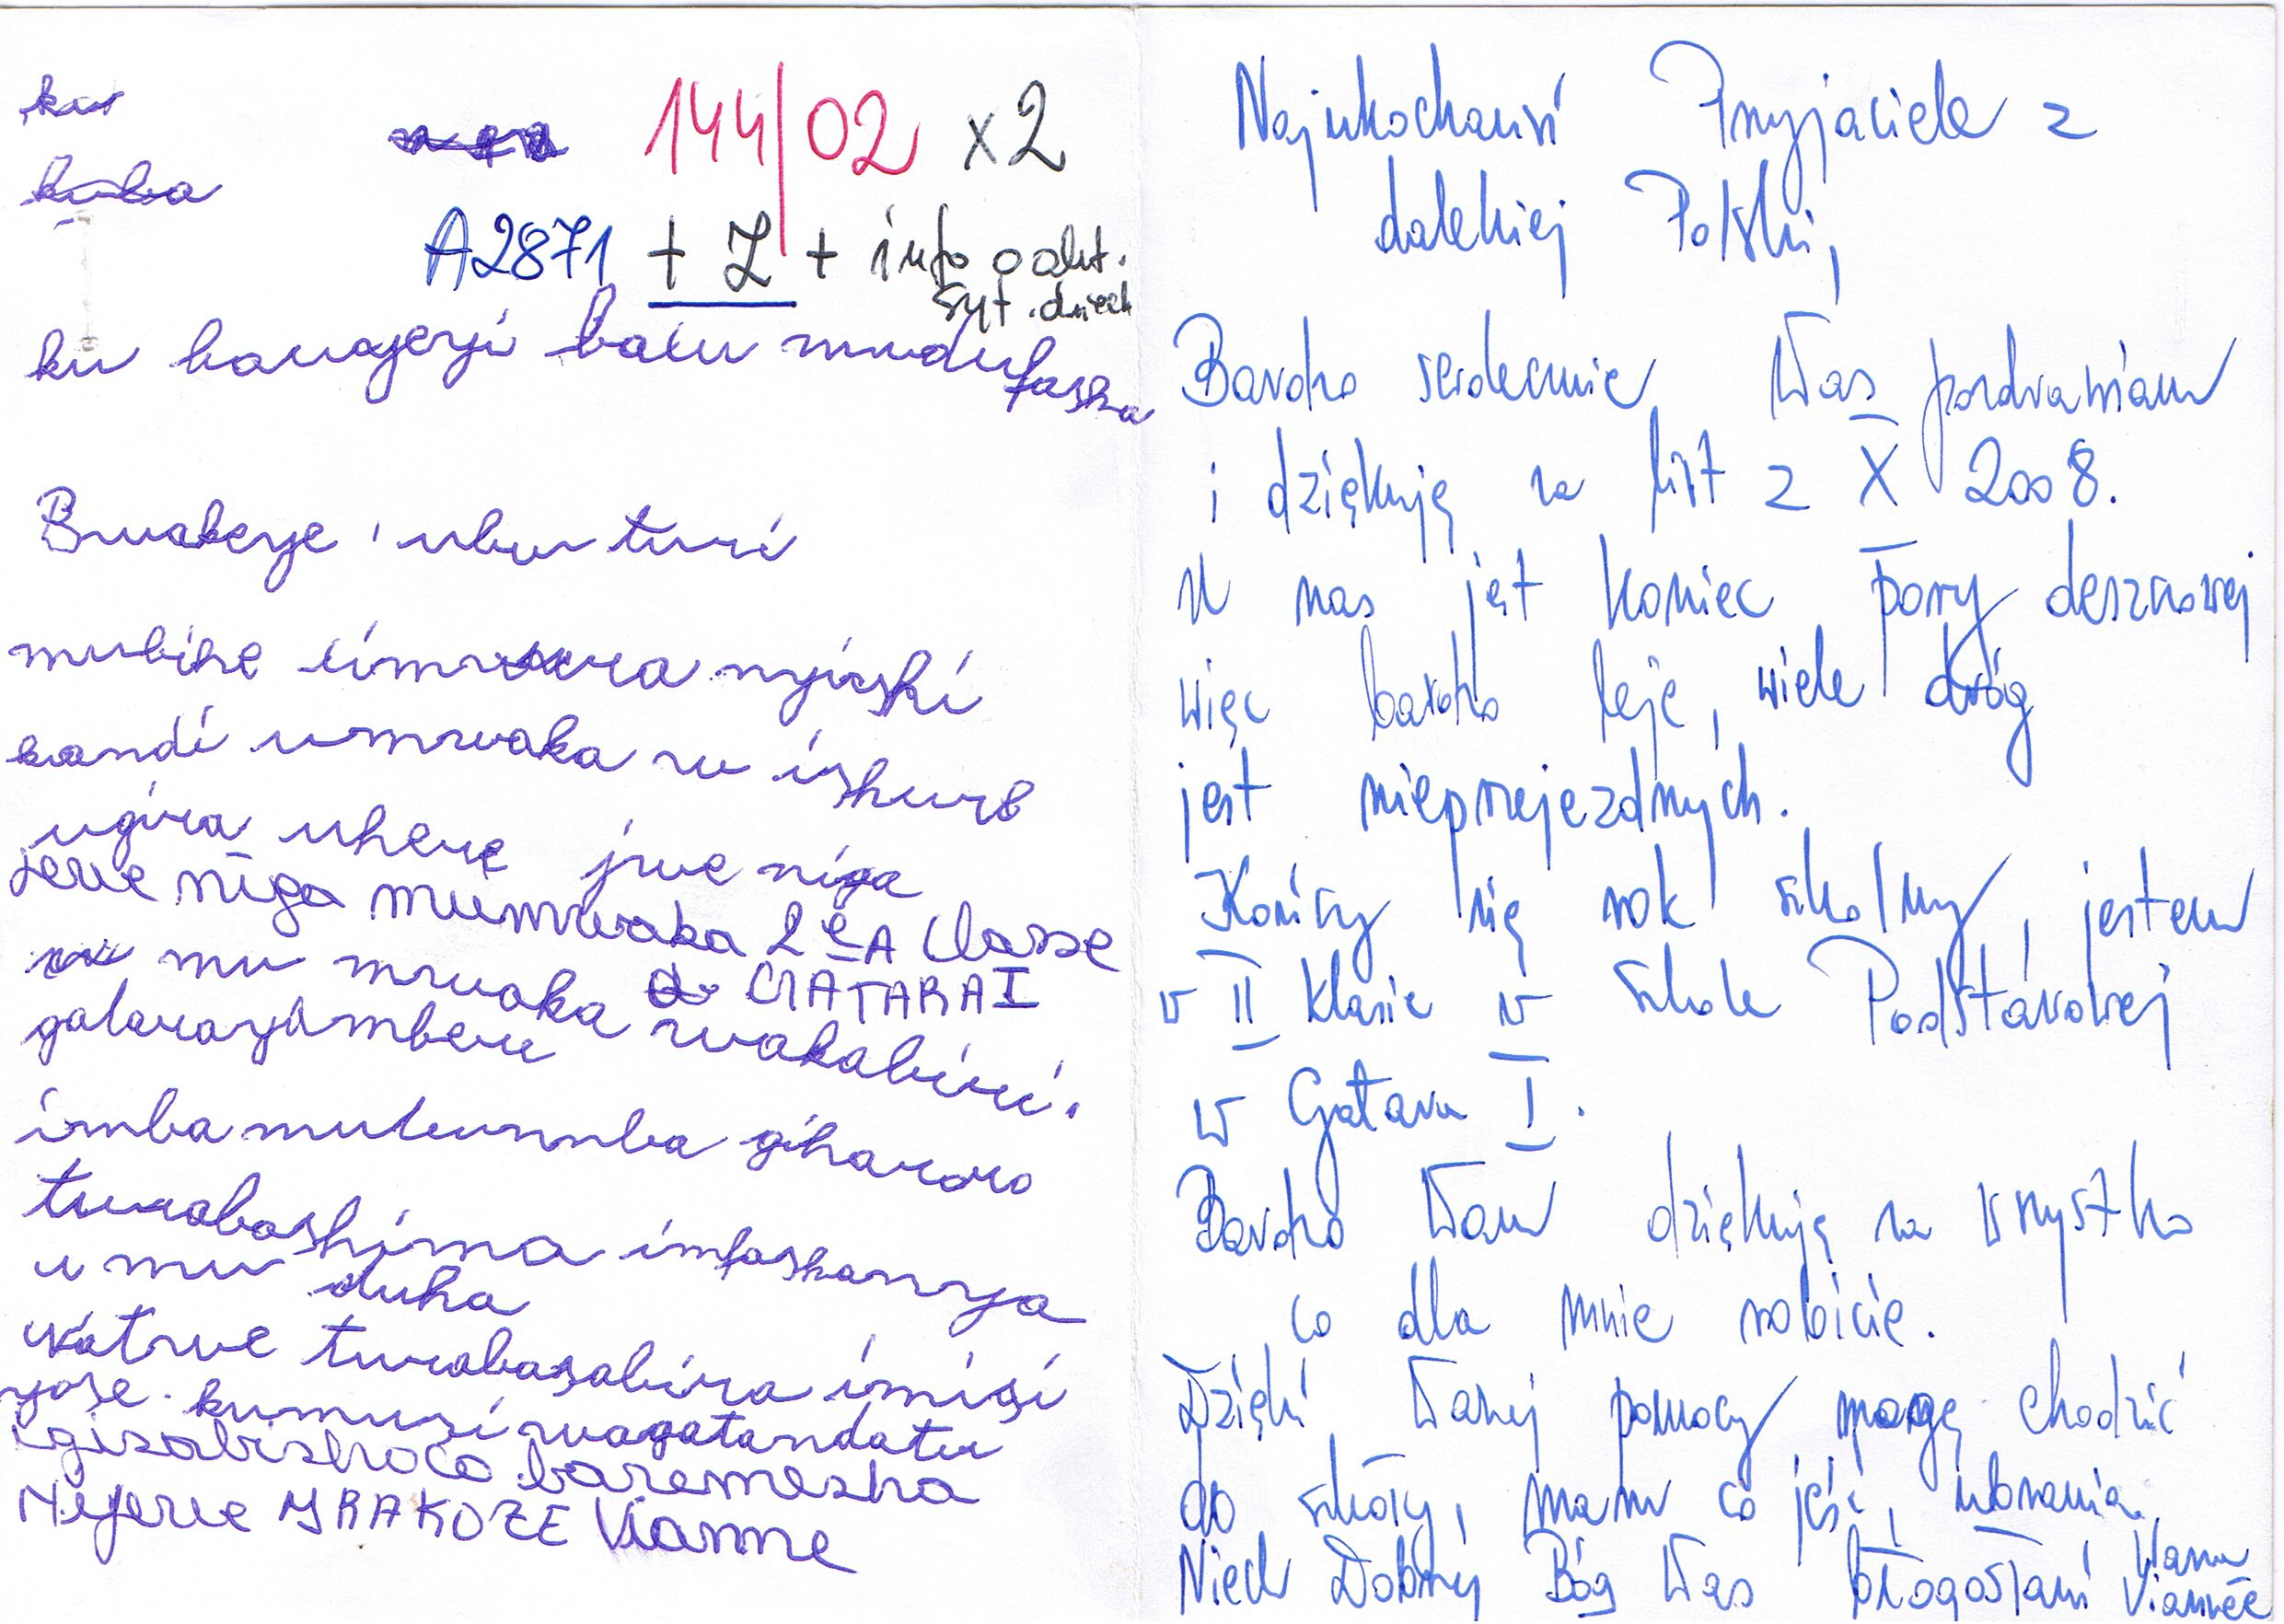 kur
kuba
144/02 x2
A2871 + Z + info o akt.
syt. dziec
ku banyeryi bacu mudufasha
Bwakeye ubu turi
mubihe imvura nyinshi
kandi umwaka w ishure
ugira uhere jwe niga
jewe niga mumwaka 2e A Classe
mu mwaka GATARAI
wakabiri.
turabashima imfashanya
mu duha
natwe turabasabira imisi
yose. kumusi wagatandatu
Nijewe IRAKOZE Vianne
Najukochańsi Przyjaciele z
dalekiej Polski,
Bardzo serdecznie Was pozdrawiam
i dziękuję za list z X 2008.
U nas jest koniec pory deszczowej
więc bardzo leje, wiele dróg
jest nieprzejezdnych.
Kończy się rok szkolny, jestem
w II klasie w Szkole Podstawowej
w Gataru I.
Bardzo Wam dziękuję za wszystko
co dla mnie robicie.
Dzięki Waszej pomocy mogę chodzić
do szkoły, mam co jeść, ubrania.
Niech Dobry Bóg Was błogosławi Wasza
Viannée